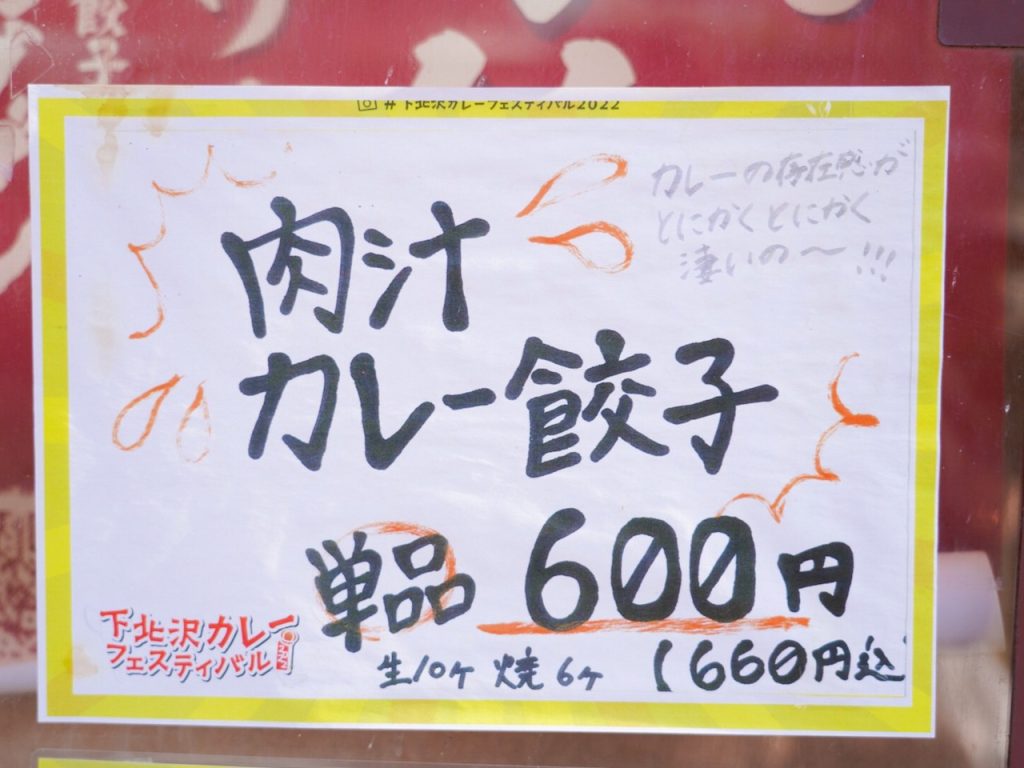 餃子
#下北沢カレーフェスティバル2022
カレーの存在感が
とにかくとにかく
凄いの～!!!
肉汁
カレー餃子
単品 600円
生10ヶ 焼6ヶ (660円込
下北沢カレー
フェスティバル